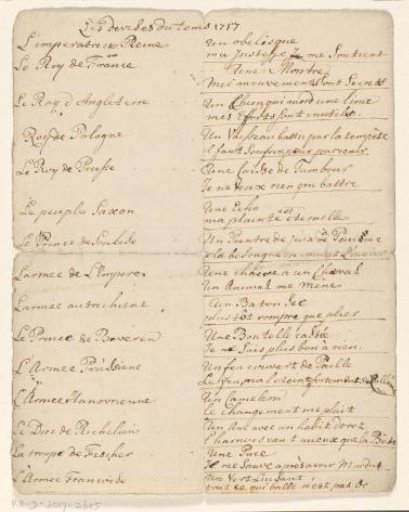 Les devises du tems 1757
L'imperatrice Reine
un obelisque
ma Justesse me soutient
Le Roy de France
Une Montre
mes mouvements sont secrets
Le Roy d'Angleterre
Un Chien qui mord une lime
mes Efforts sont inutiles
Roy de Pologne
Un Vaisseau battu par la tempête
il faut souffrir pour parvenir
Le Roy de Prusse
Une Caisse de Tambour
Je ne veux rien que battre
Le peuple Saxon
Une Echo
ma plainte est eternelle
Le Prince de Soubise
Un
L'armée de L'Empire
Une chaise a un Cheval
Un Animal me Mene
L'armée autrichiene
Un Baton sec
plustot rompre que plier
Le Prince de Beveren
Une Bouteille cassée
Je ne suis plus bon a rien
L'Armée Prussiene
Un feu couvert de Paille
Le feu
L'Armée Hanovrienne
Un Cameleon
le changement me plait
Le Duc de Richelieu
Un Ane avec un habit doré
L'harnois vaut mieux que la Bête
La troupe de Fischer
Une Puce
Je me sauve apres avoir Mordu
L'Armée Francoise
Un Ver Luisant
tout ce qui brille n'est pas Or
RP-D-2017-2605